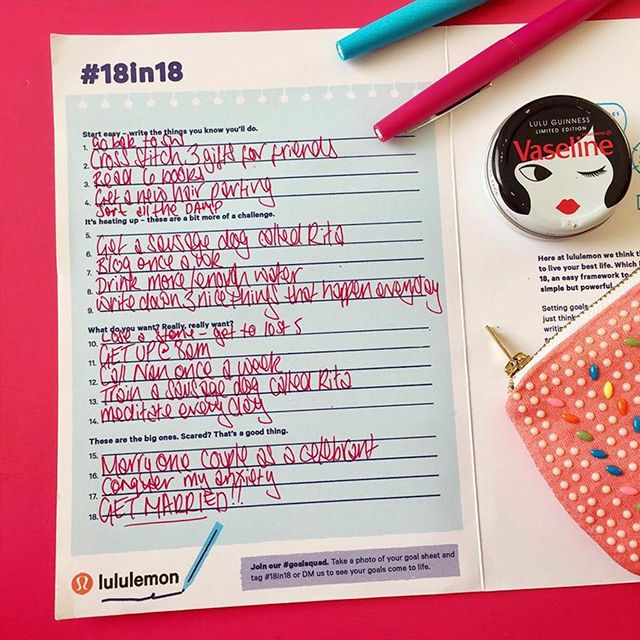 #18in18
Start easy – write the things you know you'll do.
1. Go back to SW
2. Cross stitch 3 gifts for friends
3. Read 6 books
4. Get a new hair parting
Sort all the DAMP
It's heating up – these are a bit more of a challenge.
5. Get a sausage dog called Rita
6. Blog once a week
7. Drink more/enough water
8. Write down 3 nice things that happen everyday
9.
What do you want? Really, really want?
10. Lose a stone – get to lost 5
11. GET UP @ 8am
12. Call Nan once a week
13. Train a sausage dog called Rita
14. meditate every day
These are the big ones. Scared? That's a good thing.
15. Marry one couple as a celebrant
16. Conquer my anxiety
17. GET MARRIED!!
18.
lululemon
Join our #goalsquad. Take a photo of your goal sheet and
tag #18in18 or DM us to see your goals come to life.
LULU GUINNESS
LIMITED EDITION
Vaseline
Here at lululemon we think t
to live your best life. Which i
18, an easy framework to
simple but powerful.
Setting goals
just think
writin